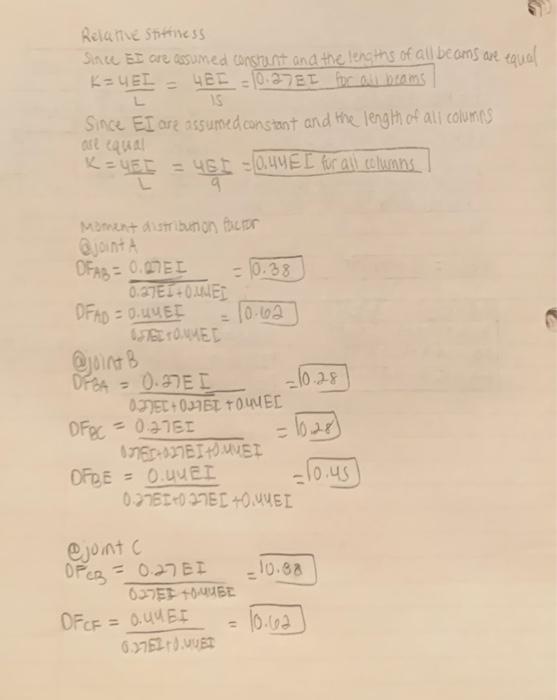 Relative Stiffness
Since EI are assumed constant and the lengths of all beams are equal
K = 4EI/L = 4EI/15 = 0.27EI for all beams
Since EI are assumed constant and the length of all columns
are equal
K = 4EI/L = 4EI/9 = 0.44EI for all columns
Moment distribution factor
@joint A
DFAB = 0.27EI/0.27EI+0.44EI = 0.38
DFAD = 0.44EI/0.27EI+0.44EI = 0.62
@joint B
DFBA = 0.27EI/0.27EI+0.27EI+0.44EI = 0.28
DFBC = 0.27EI/0.27EI+0.27EI+0.44EI = 0.28
DFBE = 0.44EI/0.27EI+0.27EI+0.44EI = 0.45
@joint C
DFCB = 0.27EI/0.27EI+0.44EI = 0.38
DFCF = 0.44EI/0.27EI+0.44EI = 0.62